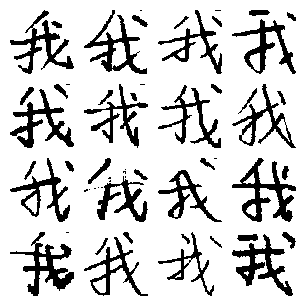 我我我我
我我我我
我我我我
我我我我